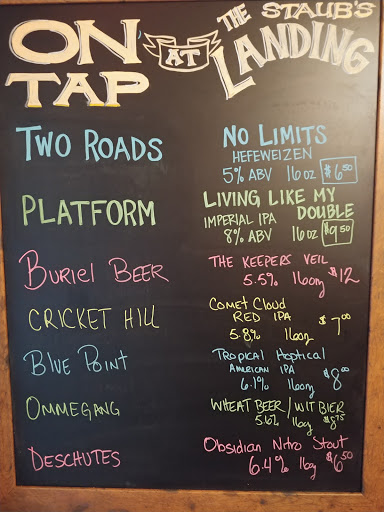 ON TAP AT THE STAUB'S LANDING
TWO ROADS
NO LIMITS
HEFEWEIZEN
5% ABV 16oz $6.50
PLATFORM
LIVING LIKE MY DOUBLE
IMPERIAL IPA
8% ABV 16oz $9.50
BURIEL BEER
THE KEEPERS VEIL
5.5% 16oz $12
CRICKET HILL
Comet Cloud
RED IPA $7.00
5.8% 16oz
BLUE POINT
Tropical Hoptical
AMERICAN IPA
6.1% 16oz $8.00
OMMEGANG
WHEAT BEER / WIT BIER
5.6% 16oz $8.75
DESCHUTES
Obsidian Nitro Stout
6.4% 16oz $6.50